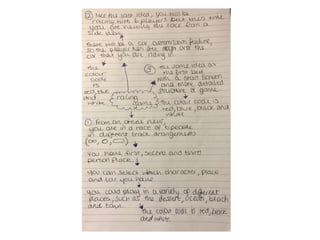 ② For the last idea, you must be
racing with 6 players but this time
you are viewing the race from a
side view.
there will be a car customisation feature,
so the player can see the car
that you are riding in
the colour
code
is
red, blue
and
white
③ the same idea as
the first but
with a start screen
and more detailed
structure of game
the colour code is
red, blue, black and
white
racing
game
① From an areal view,
you are in a race of 6 people
in different track arrangements
You have first, second and third
person place.
You can select which character, place
and car you have.
You could play in a variety of different
places, such as the desert, ocean, beach
and town.
the colour code is red, black
and white.